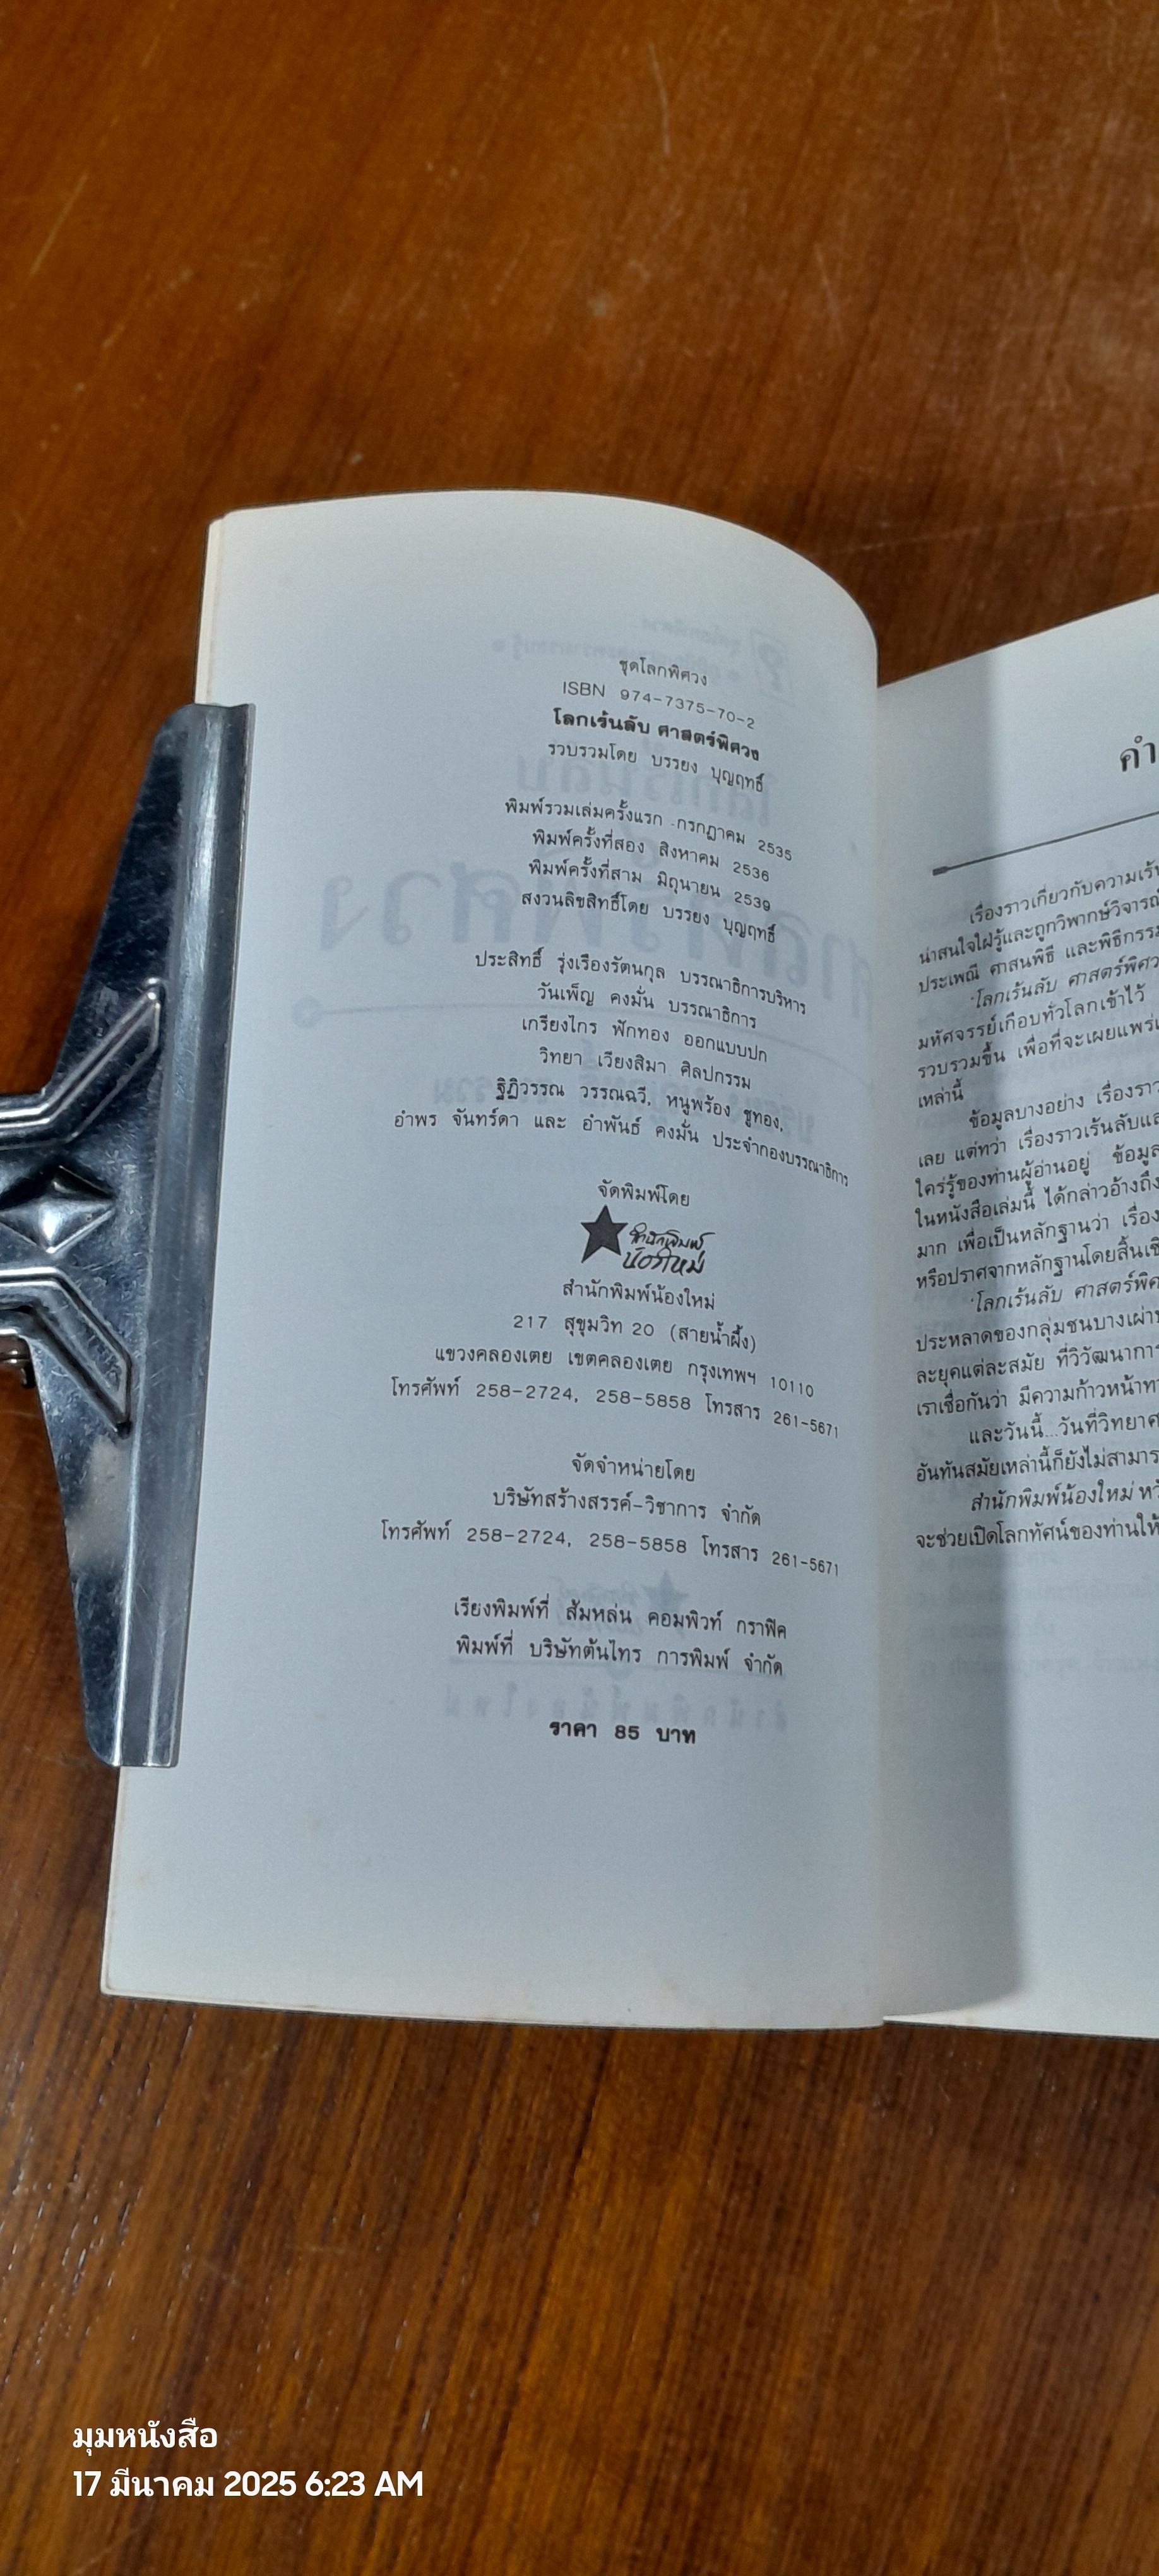 ชุดโลกพิศวง
ISBN 974-7375-70-2
โลกเร้นลับ ศาสตร์พิศวง
รวบรวมโดย บรรยง บุญฤทธิ์
พิมพ์รวมเล่มครั้งแรก กรกฎาคม 2535
พิมพ์ครั้งที่สอง สิงหาคม 2536
พิมพ์ครั้งที่สาม มิถุนายน 2539
สงวนลิขสิทธิ์โดย บรรยง บุญฤทธิ์
ประสิทธิ์ รุ่งเรืองรัตนกุล บรรณาธิการบริหาร
วันเพ็ญ คงมั่น บรรณาธิการ
เกรียงไกร ฟักทอง ออกแบบปก
วิทยา เวียงสิมา ศิลปกรรม
ฐิฏิวรรณ วรรณฉวี, หนูพร้อง ชูทอง,
อำพร จันทร์ดา และ อำพันธ์ คงมั่น ประจำกองบรรณาธิการ
จัดพิมพ์โดย
สำนักพิมพ์
น้องใหม่
สำนักพิมพ์น้องใหม่
217 สุขุมวิท 20 (สายน้ำผึ้ง)
แขวงคลองเตย เขตคลองเตย กรุงเทพฯ 10110
โทรศัพท์ 258-2724, 258-5858 โทรสาร 261-5671
จัดจำหน่ายโดย
บริษัทสร้างสรรค์-วิชาการ จำกัด
โทรศัพท์ 258-2724, 258-5858 โทรสาร 261-5671
เรียงพิมพ์ที่ ส้มหล่น คอมพิวท์ กราฟิค
พิมพ์ที่ บริษัทต้นไทร การพิมพ์ จำกัด
ราคา 85 บาท
คำ
เรื่องราวเกี่ยวกับความเร้น
น่าสนใจใฝ่รู้และถูกวิพากษ์วิจารณ์
ประเพณี ศาสนพิธี และพิธีกรรม
'โลกเร้นลับ ศาสตร์พิศว
มหัศจรรย์เกือบทั่วโลกเข้าไว้
รวบรวมขึ้น เพื่อที่จะเผยแพร่เ
เหล่านี้
ข้อมูลบางอย่าง เรื่องราว
เลย แต่ทว่า เรื่องราวเร้นลับแล
ใคร่รู้ของท่านผู้อ่านอยู่ ข้อมูล
ในหนังสือเล่มนี้ ได้กล่าวอ้างถึง
มาก เพื่อเป็นหลักฐานว่า เรื่อง
หรือปราศจากหลักฐานโดยสิ้นเชิ
'โลกเร้นลับ ศาสตร์พิศ
ประหลาดของกลุ่มชนบางเผ่า
ละยุคแต่ละสมัย ที่วิวัฒนาการ
เราเชื่อกันว่า มีความก้าวหน้าทา
และวันนี้...วันที่วิทยาศ
อันทันสมัยเหล่านี้ก็ยังไม่สามาร
สำนักพิมพ์น้องใหม่ หวั
จะช่วยเปิดโลกทัศน์ของท่านให้
มุมหนังสือ
17 มีนาคม 2025 6:23 AM